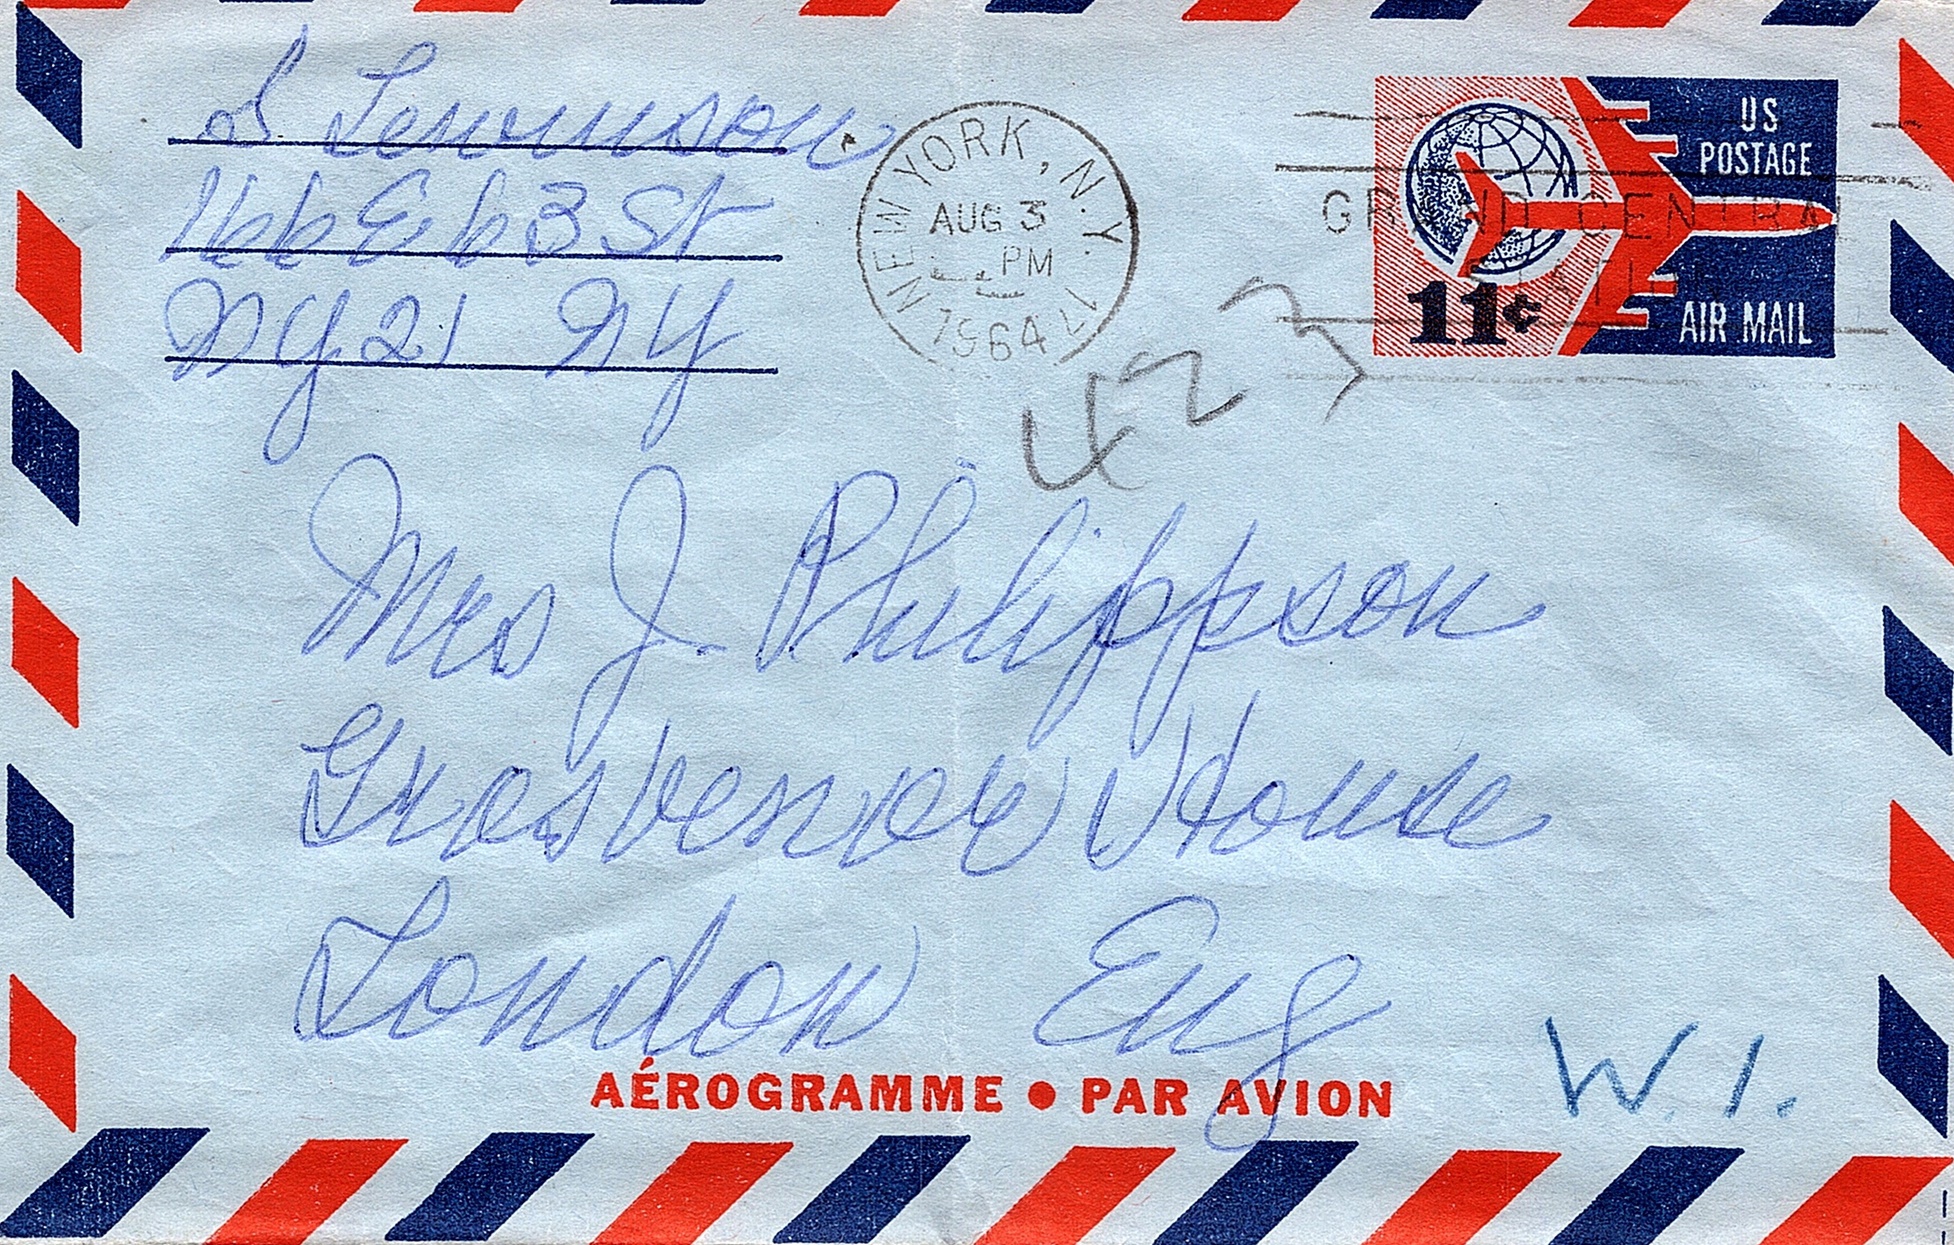 S Levinson
166 E 63 St
NY 21 NY
NEW YORK, N.Y. 17
AUG 3
PM
1964
GRAND CENTRAL
STATION
US
POSTAGE
11¢
AIR MAIL
423
Mrs J. Philippson
Grosvenor House
London Eng
AÉROGRAMME • PAR AVION
W.1.